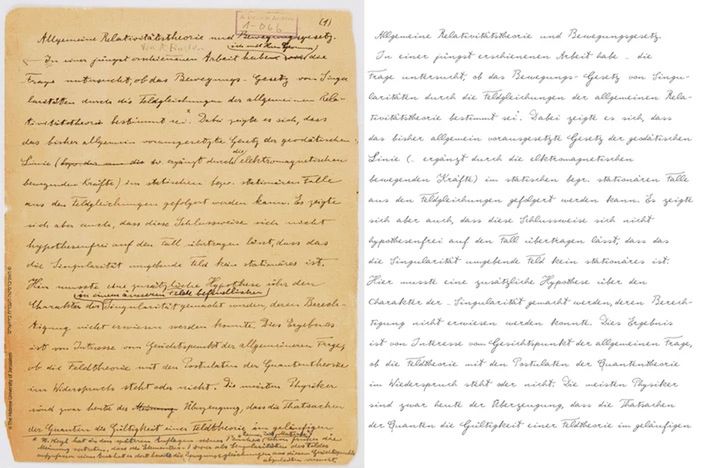 (1)
Allgemeine Relativitätstheorie und Bewegungsgesetz.
In einer jüngst erschienenen Arbeit habe die
Frage untersucht, ob das Bewegungs-Gesetz von Singu-
laritäten durch die Feldgleichungen der allgemeinen Rela-
tivitätstheorie bestimmt sei. Dabei zeigte es sich, dass
das bisher allgemein vorausgesetzte Gesetz der geodätischen
Linie ( ergänzt durch die elektromagnetischen
bewegenden Kräfte) im statischen bezw. stationären Falle
aus den Feldgleichungen gefolgert werden kann. Es zeigte
sich aber auch, dass diese Schlussweise sich nicht
hypothesenfrei auf den Fall übertragen lässt, dass das
die Singularität umgebende Feld kein stationäres ist.
Hier musste eine zusätzliche Hypothese über den
in einem äusseren Felde befindlichen
Charakter der Singularität gemacht werden, deren Berech-
tigung nicht erwiesen werden konnte. Dies Ergebnis
ist von Interesse vom Gesichtspunkt der allgemeineren Frage,
ob die Feldtheorie mit den Postulaten der Quantentheorie
im Widerspruch steht oder nicht. Die meisten Physiker
sind zwar heute der Überzeugung, dass die Thatsachen
der Quanten die Gültigkeit einer Feldtheorie im geläufigen
© The Hebrew University of Jerusalem
Allgemeine Relativitätstheorie und Bewegungsgesetz.
In einer jüngst erschienenen Arbeit habe - die
Frage untersucht, ob das Bewegungs-Gesetz von Singu-
laritäten durch die Feldgleichungen der allgemeinen Rela-
tivitätstheorie bestimmt sei. Dabei zeigte es sich, dass
das bisher allgemein vorausgesetzte Gesetz der geodätischen
Linie (. ergänzt durch die elktromagnetischen
bewegenden Kräfte) im statischen begr. stationären Falle
aus den Feldgleichungen gefolgert werden kann. Es zeigte
sich aber auch, dass diese Schlussweise sich nicht
hypothesenfrei auf den Fall übertragen lässt, dass das
die Singularität umgebende Feld kein stationäres ist.
Hier musste eine zusätzliche Hypothese über den
Charakter der - Singularität gemacht werden, deren Berech-
tigung nicht erwiesen werden konnte. Dies Ergebnis
ist von Interesse vom Gesichtspunkt der allgemeinen Frage,
ob die Feldtheorie mit den Postulaten der Quantentheorie
im Wiederspruch steht oder nicht. Die meisten Physiker
sind zwar heute der Überzeugung, dass die Thatsachen
der Quanten die Gültigkeit einer Feldtheorie im geläufigen